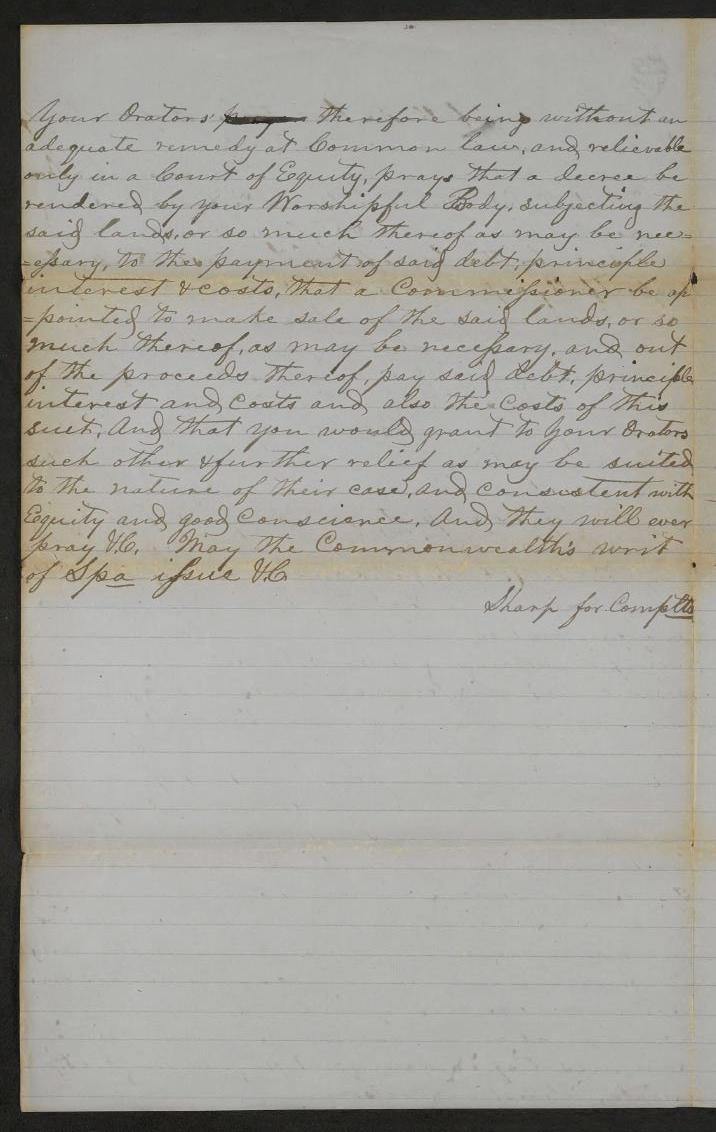 Your Orators therefore being without an
adequate remedy at Common law, and relievable
only in a Court of Equity, prays that a decree be
rendered by your Worshipful Body, subjecting the
said lands, or so much thereof as may be nec=
=essary, to the payment of said debt, principle
interest & costs, that a Commissioner be ap
=pointed to make sale of the said lands, or so
much thereof, as may be necessary, and out
of the proceeds thereof, pay said debt, principle
interest and costs and also the costs of this
suit, And that you would grant to your Orators
such other & further relief as may be suited
to the nature of their case, and consistent with
Equity and good conscience. And they will ever
pray &C. May the Commonwealth's writ
of Spa issue &C
Sharp for Complts